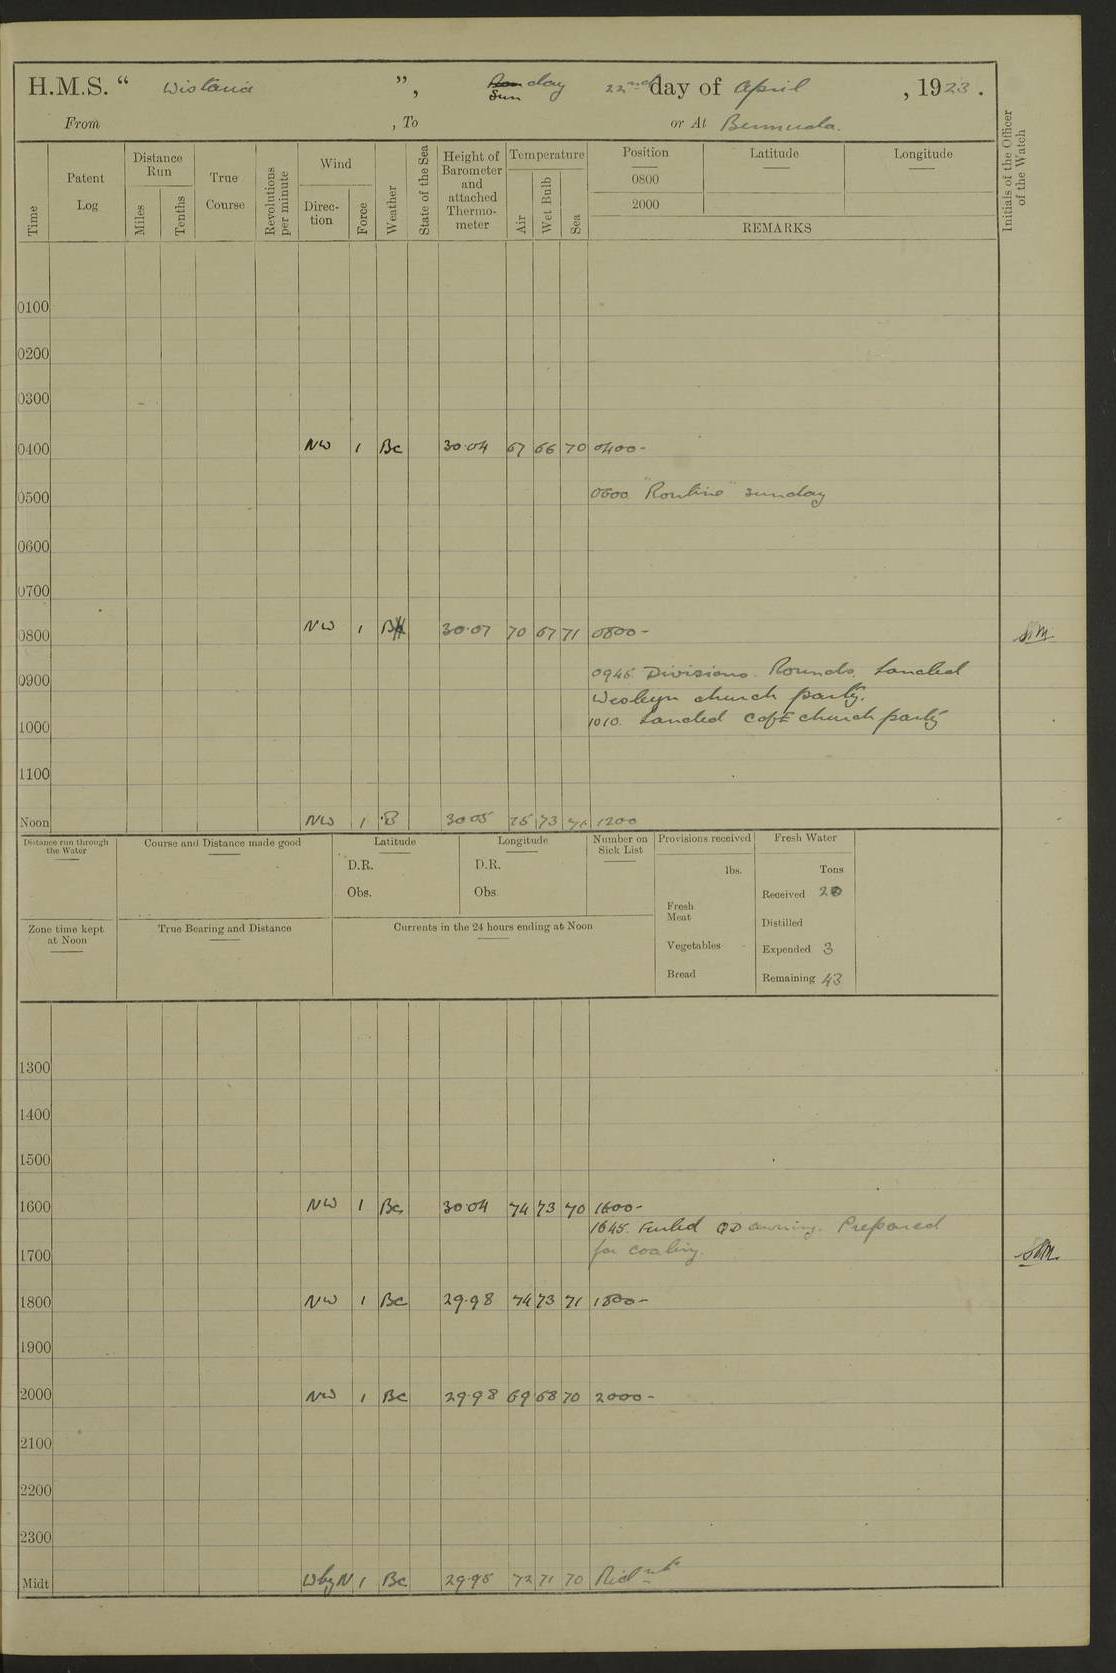 H.M.S. “ Wistaria ”, Mon Sunday 22nd day of April, 1923.
From , To or At Bermuda.
Time
Patent Log
Distance Run
Miles
Tenths
True Course
Revolutions per minute
Wind
Direc-tion
Force
Weather
State of the Sea
Height of Barometer and attached Thermo-meter
Temperature
Air
Wet Bulb
Sea
Position
0800
2000
Latitude
Longitude
REMARKS
Initials of the Officer of the Watch
0100
0200
0300
0400 NW 1 Bc 30.04 67 66 70 0400-
0500 0600 "Routine" Sunday
0600
0700
0800 NW 1 B 30.07 70 67 71 0800-
0900 0945 Divisions. Rounds. Landed
Wesleyn church party.
1000 1010 Landed C of E church party
1100
Noon NW 1 B 30 05 75 73 71 1200
Distance run through the Water
Course and Distance made good
Latitude
D.R.
Obs.
Longitude
D.R.
Obs.
Number on Sick List
Provisions received
lbs.
Fresh Meat
Vegetables
Bread
Fresh Water
Tons
Received 20
Distilled
Expended 3
Remaining 43
Zone time kept at Noon
True Bearing and Distance
Currents in the 24 hours ending at Noon
1300
1400
1500
1600 NW 1 Bc 30.04 74 73 70 1600-
1645. Furled QD awning. Prepared
1700 for coaling.
1800 NW 1 Bc 29.98 74 73 71 1800-
1900
2000 NW 1 Bc 29.98 69 68 70 2000-
2100
2200
2300
Midt WbyN 1 Bc 29.95 72 71 70 Midnt